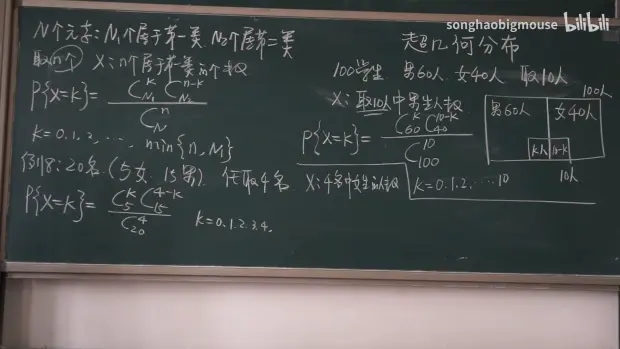 songhaobigmouse bilibili
N个元素: N₁个属于第一类. N₂个属第二类
取n个 X: n个属于第一类的个数
P{X=k}= C_{N₁}^{k} C_{N₂}^{n-k} / C_N^n
k=0.1.2, ···, min{n, N₁}
例18: 20名. (5女. 15男). 任取4名 X: 4名中女生的人数
P{X=k}= C_5^k C_{15}^{4-k} / C_{20}^4 k=0.1.2.3.4.
超几何分布
100学生 男60人. 女40人 取10人
X: 取10人中男生人数
P{X=k}= C_{60}^k C_{40}^{10-k} / C_{100}^{10}
k=0.1.2, ····10
100人
男60人 女40人
k人 10-k
10人